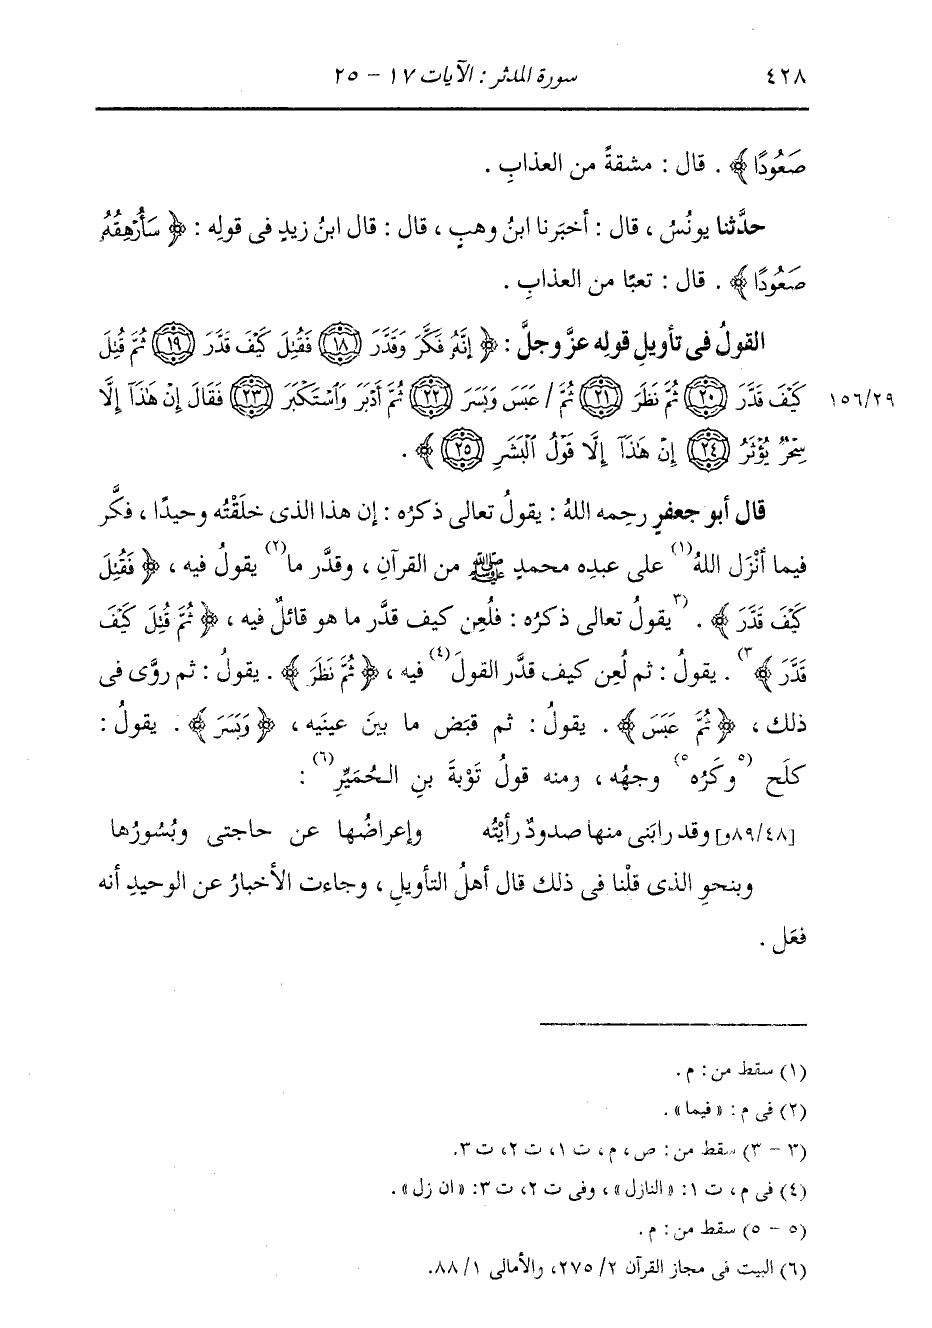 ٤٢٨ سورة المدثر : الآيات ١٧ - ٢٥
صَعُودًا ﴾ . قال : مشقةً من العذابِ .
حدَّثنا يونُسُ ، قال : أخبَرنا ابنُ وهبٍ ، قال : قال ابنُ زيدٍ فى قولِه : ﴿ سَأُرْهِقُهُ
صَعُودًا ﴾ . قال : تعبًا من العذابِ .
القولُ فى تأويلِ قولِه عزَّ وجلَّ : ﴿ إِنَّهُ فَكَّرَ وَقَدَّرَ ﴿١٨﴾ فَقُتِلَ كَيْفَ قَدَّرَ ﴿١٩﴾ ثُمَّ قُتِلَ
كَيْفَ قَدَّرَ ﴿٢٠﴾ ثُمَّ نَظَرَ ﴿٢١﴾ ثُمَّ / عَبَسَ وَبَسَرَ ﴿٢٢﴾ ثُمَّ أَدْبَرَ وَاسْتَكْبَرَ ﴿٢٣﴾ فَقَالَ إِنْ هَٰذَآ إِلَّا ١٥٦/٢٩
سِحْرٌ يُؤْثَرُ ﴿٢٤﴾ إِنْ هَٰذَآ إِلَّا قَوْلُ الْبَشَرِ ﴿٢٥﴾ ﴾ .
قال أبو جعفرٍ رحِمه اللهُ : يقولُ تعالى ذكرُه : إن هذا الذى خلَقْتُه وحيدًا ، فكَّر
فيما أَنْزَل اللهُ(١) على عبدِه محمدٍ ﷺ من القرآنِ ، وقدَّر ما(٢) يقولُ فيه ، ﴿ فَقُتِلَ
كَيْفَ قَدَّرَ ﴾ . (٣يقولُ تعالى ذكرُه : فلُعِن كيف قدَّر ما هو قائلٌ فيه ، ﴿ ثُمَّ قُتِلَ كَيْفَ
قَدَّرَ ﴾٣) . يقولُ : ثم لُعِن كيف قدَّر القولَ(٤) فيه ، ﴿ ثُمَّ نَظَرَ ﴾ . يقولُ : ثم روَّى فى
ذلك ، ﴿ ثُمَّ عَبَسَ ﴾ . يقولُ : ثم قبَض ما بينَ عينَيه ، ﴿ وَبَسَرَ ﴾ . يقولُ :
كلَح (٥وكَرُه٥) وجهُه ، ومنه قولُ تَوْبةَ بنِ الحُمَيِّرِ(٦) :
[٨٩/٤٨و] وقد رابَنى منها صدودٌ رأَيْتُه وإعراضُها عن حاجتى وبُسُورُها
وبنحوِ الذى قلْنا فى ذلك قال أهلُ التأويلِ ، وجاءت الأخبارُ عن الوحيدِ أنه
فعَل .
(١) سقط من : م .
(٢) فى م : « فيما » .
(٣ - ٣) سقط من : ص ، م ، ت ١، ت ٢، ت ٣.
(٤) فى م ، ت ١: « النازل » ، وفى ت ٢، ت ٣: « ان زل » .
(٥ - ٥) سقط من : م .
(٦) البيت فى مجاز القرآن ٢/ ٢٧٥، والأمالى ١/ ٨٨.